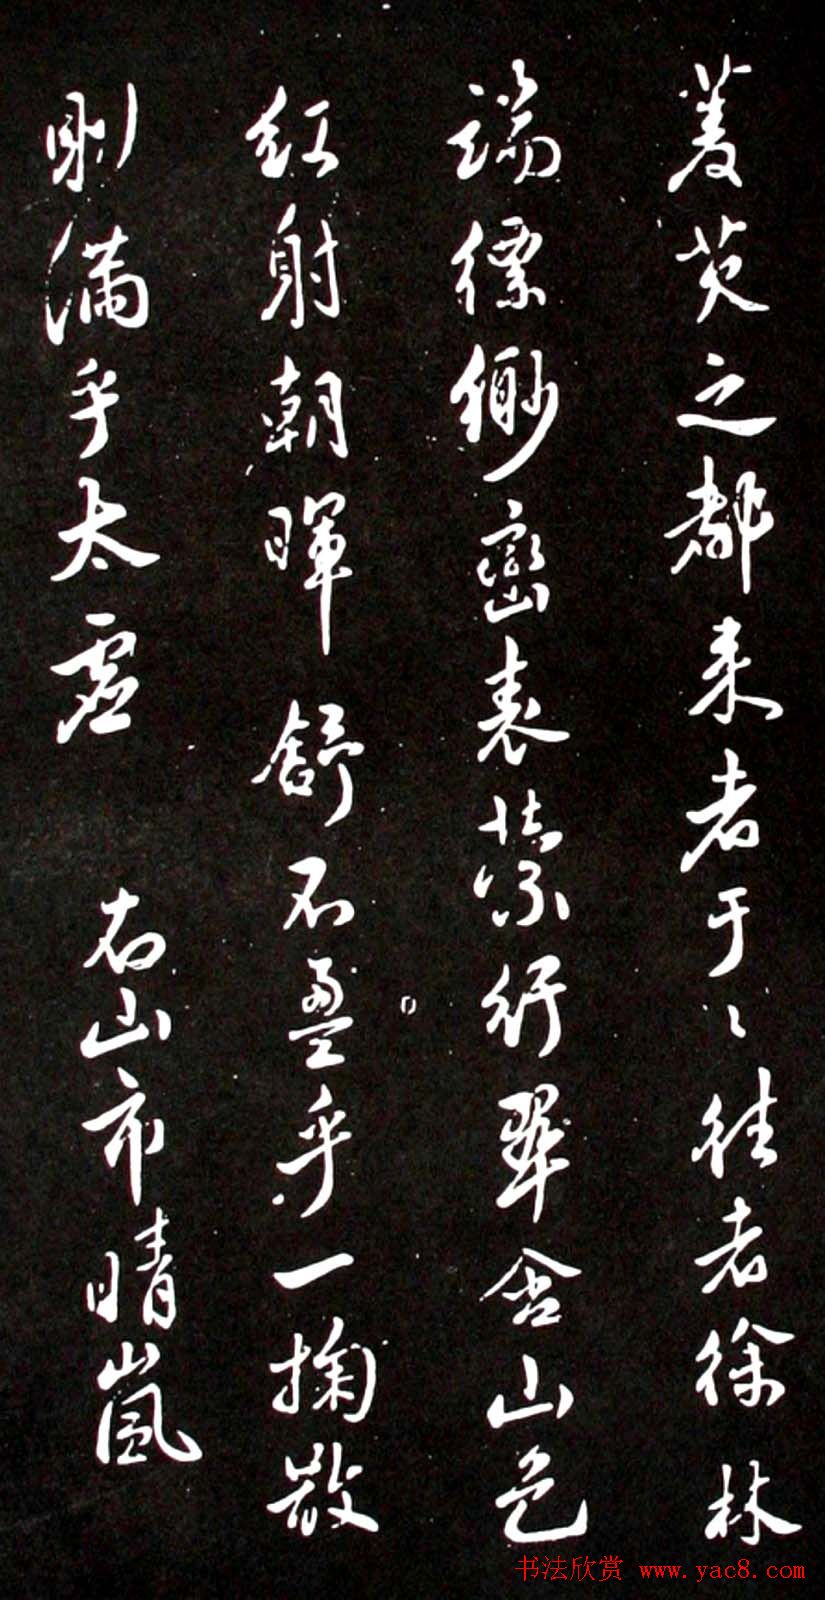 菱芡之都来者于々往者徐林
端縹緲巒表縈紆翠含山色
紅射朝暉舒不盈乎一掬散
則滿乎太虛 右山市晴嵐
书法欣赏 www.yac8.com